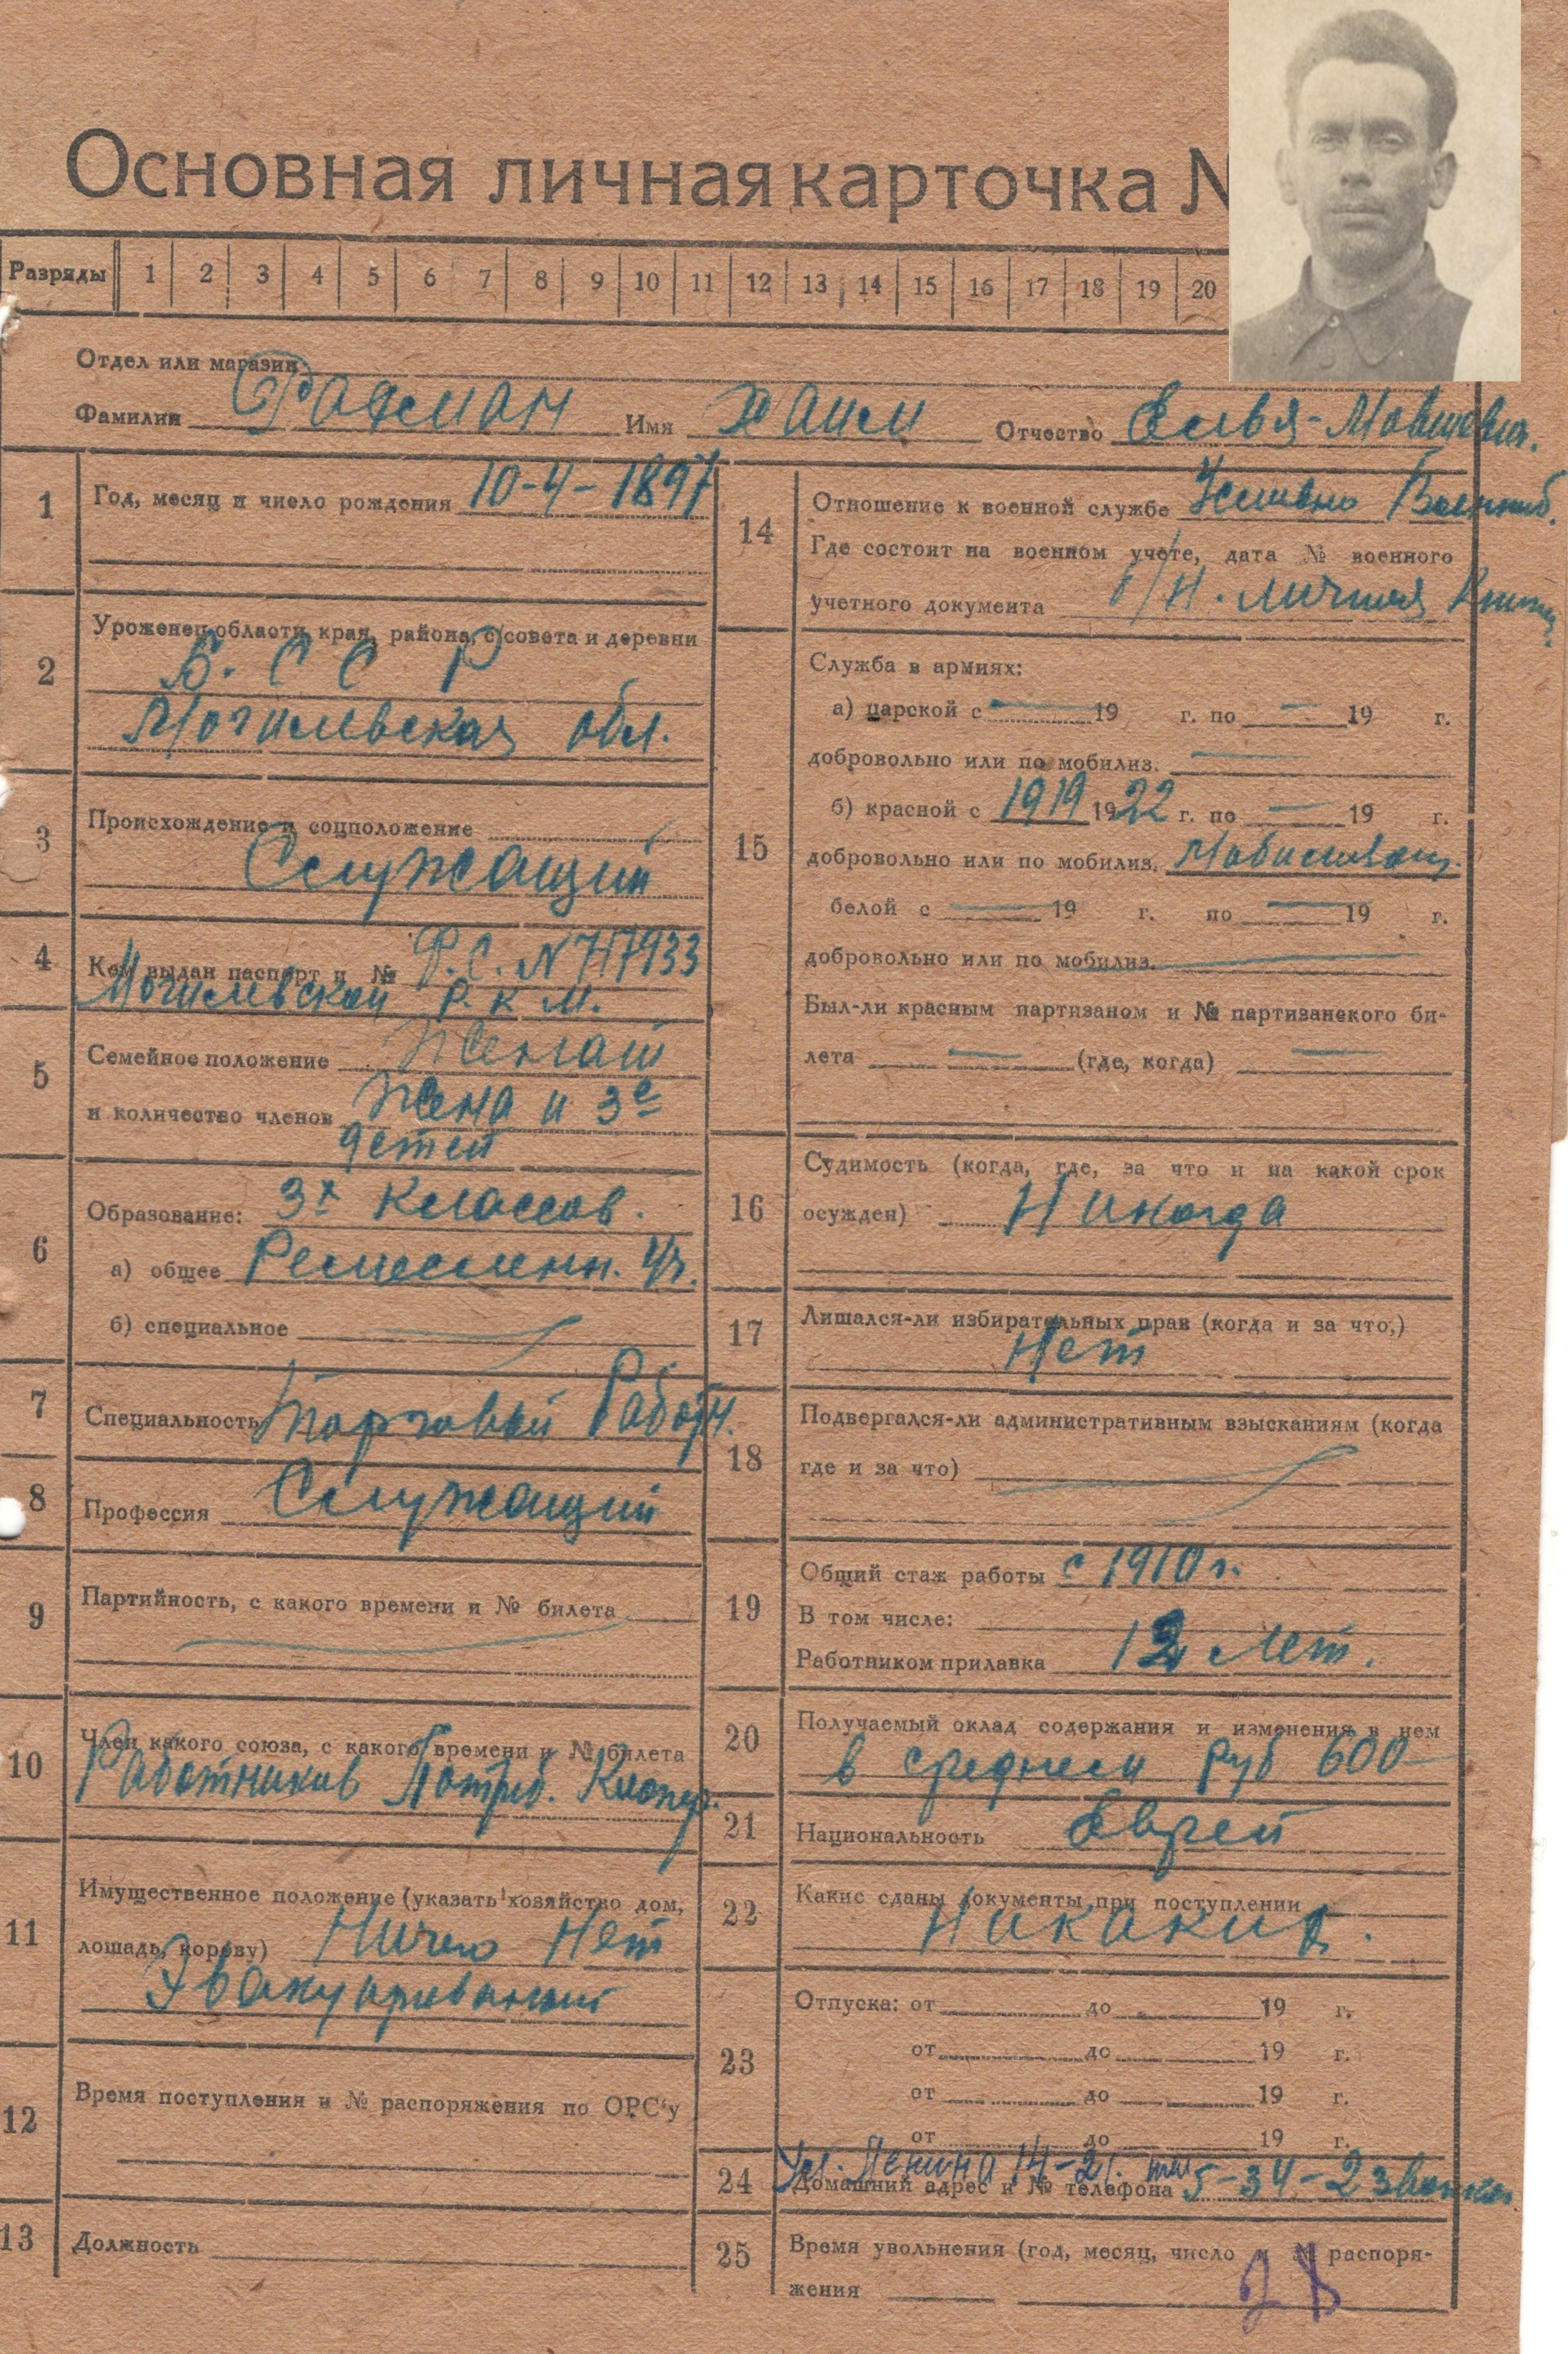 Основная личная карточка
Разряды 1 2 3 4 5 6 7 8 9 10 11 12 13 14 15 16 17 18 19 20
Отдел или магазин
Фамилия Имя Хаим Отчество
1 Год, месяц и число рождения 10-4-1897
2 Уроженец области, края, района, с/совета и деревни
Б. С С Р
Могилевская обл.
3 Происхождение и соцположение
Служащий
4 Кем выдан паспорт и №
Могилевской Р. К М.
5 Семейное положение Женат
и количество членов Жена и 3е
детей
6 Образование: 3х классов.
а) общее Ремесленн. Уч.
б) специальное
7 Специальность Торговый Работн.
8 Профессия Служащий
9 Партийность, с какого времени и № билета
10 Член какого союза, с какого времени и № билета
Работников
11 Имущественное положение (указать хозяйство дом,
лошадь, корову) Ничего Нет
Эвакуированный
12 Время поступления и № распоряжения по ОРС'у
13 Должность
14 Отношение к военной службе
Где состоит на военном учете, дата № военного
учетного документа личная
15 Служба в армиях:
а) царской с — 19 г. по — 19 г.
добровольно или по мобилиз. —
б) красной с 1919 1922 г. по — 19 г.
добровольно или по мобилиз.
белой с — 19 г. по — 19 г.
добровольно или по мобилиз. —
Был-ли красным партизаном и № партизанского би-
лета — (где, когда) —
16 Судимость (когда, где, за что и на какой срок
осужден) Никогда
17 Лишался-ли избирательных прав (когда и за что,)
Нет
18 Подвергался-ли административным взысканиям (когда
где и за что)
19 Общий стаж работы с 1910 г.
В том числе:
Работником прилавка 12 лет.
20 Получаемый оклад содержания и изменения в нем
в среднем руб 600—
21 Национальность Еврей
22 Какие сданы документы при поступлении
Никаких.
23 Отпуска: от до 19 г.
от до 19 г.
от до 19 г.
от до 19 г.
Ул. Ленина 14-21. тел
24 Домашний адрес и № телефона 5-34-2 звонка
25 Время увольнения (год, месяц, число и № распоря-
жения